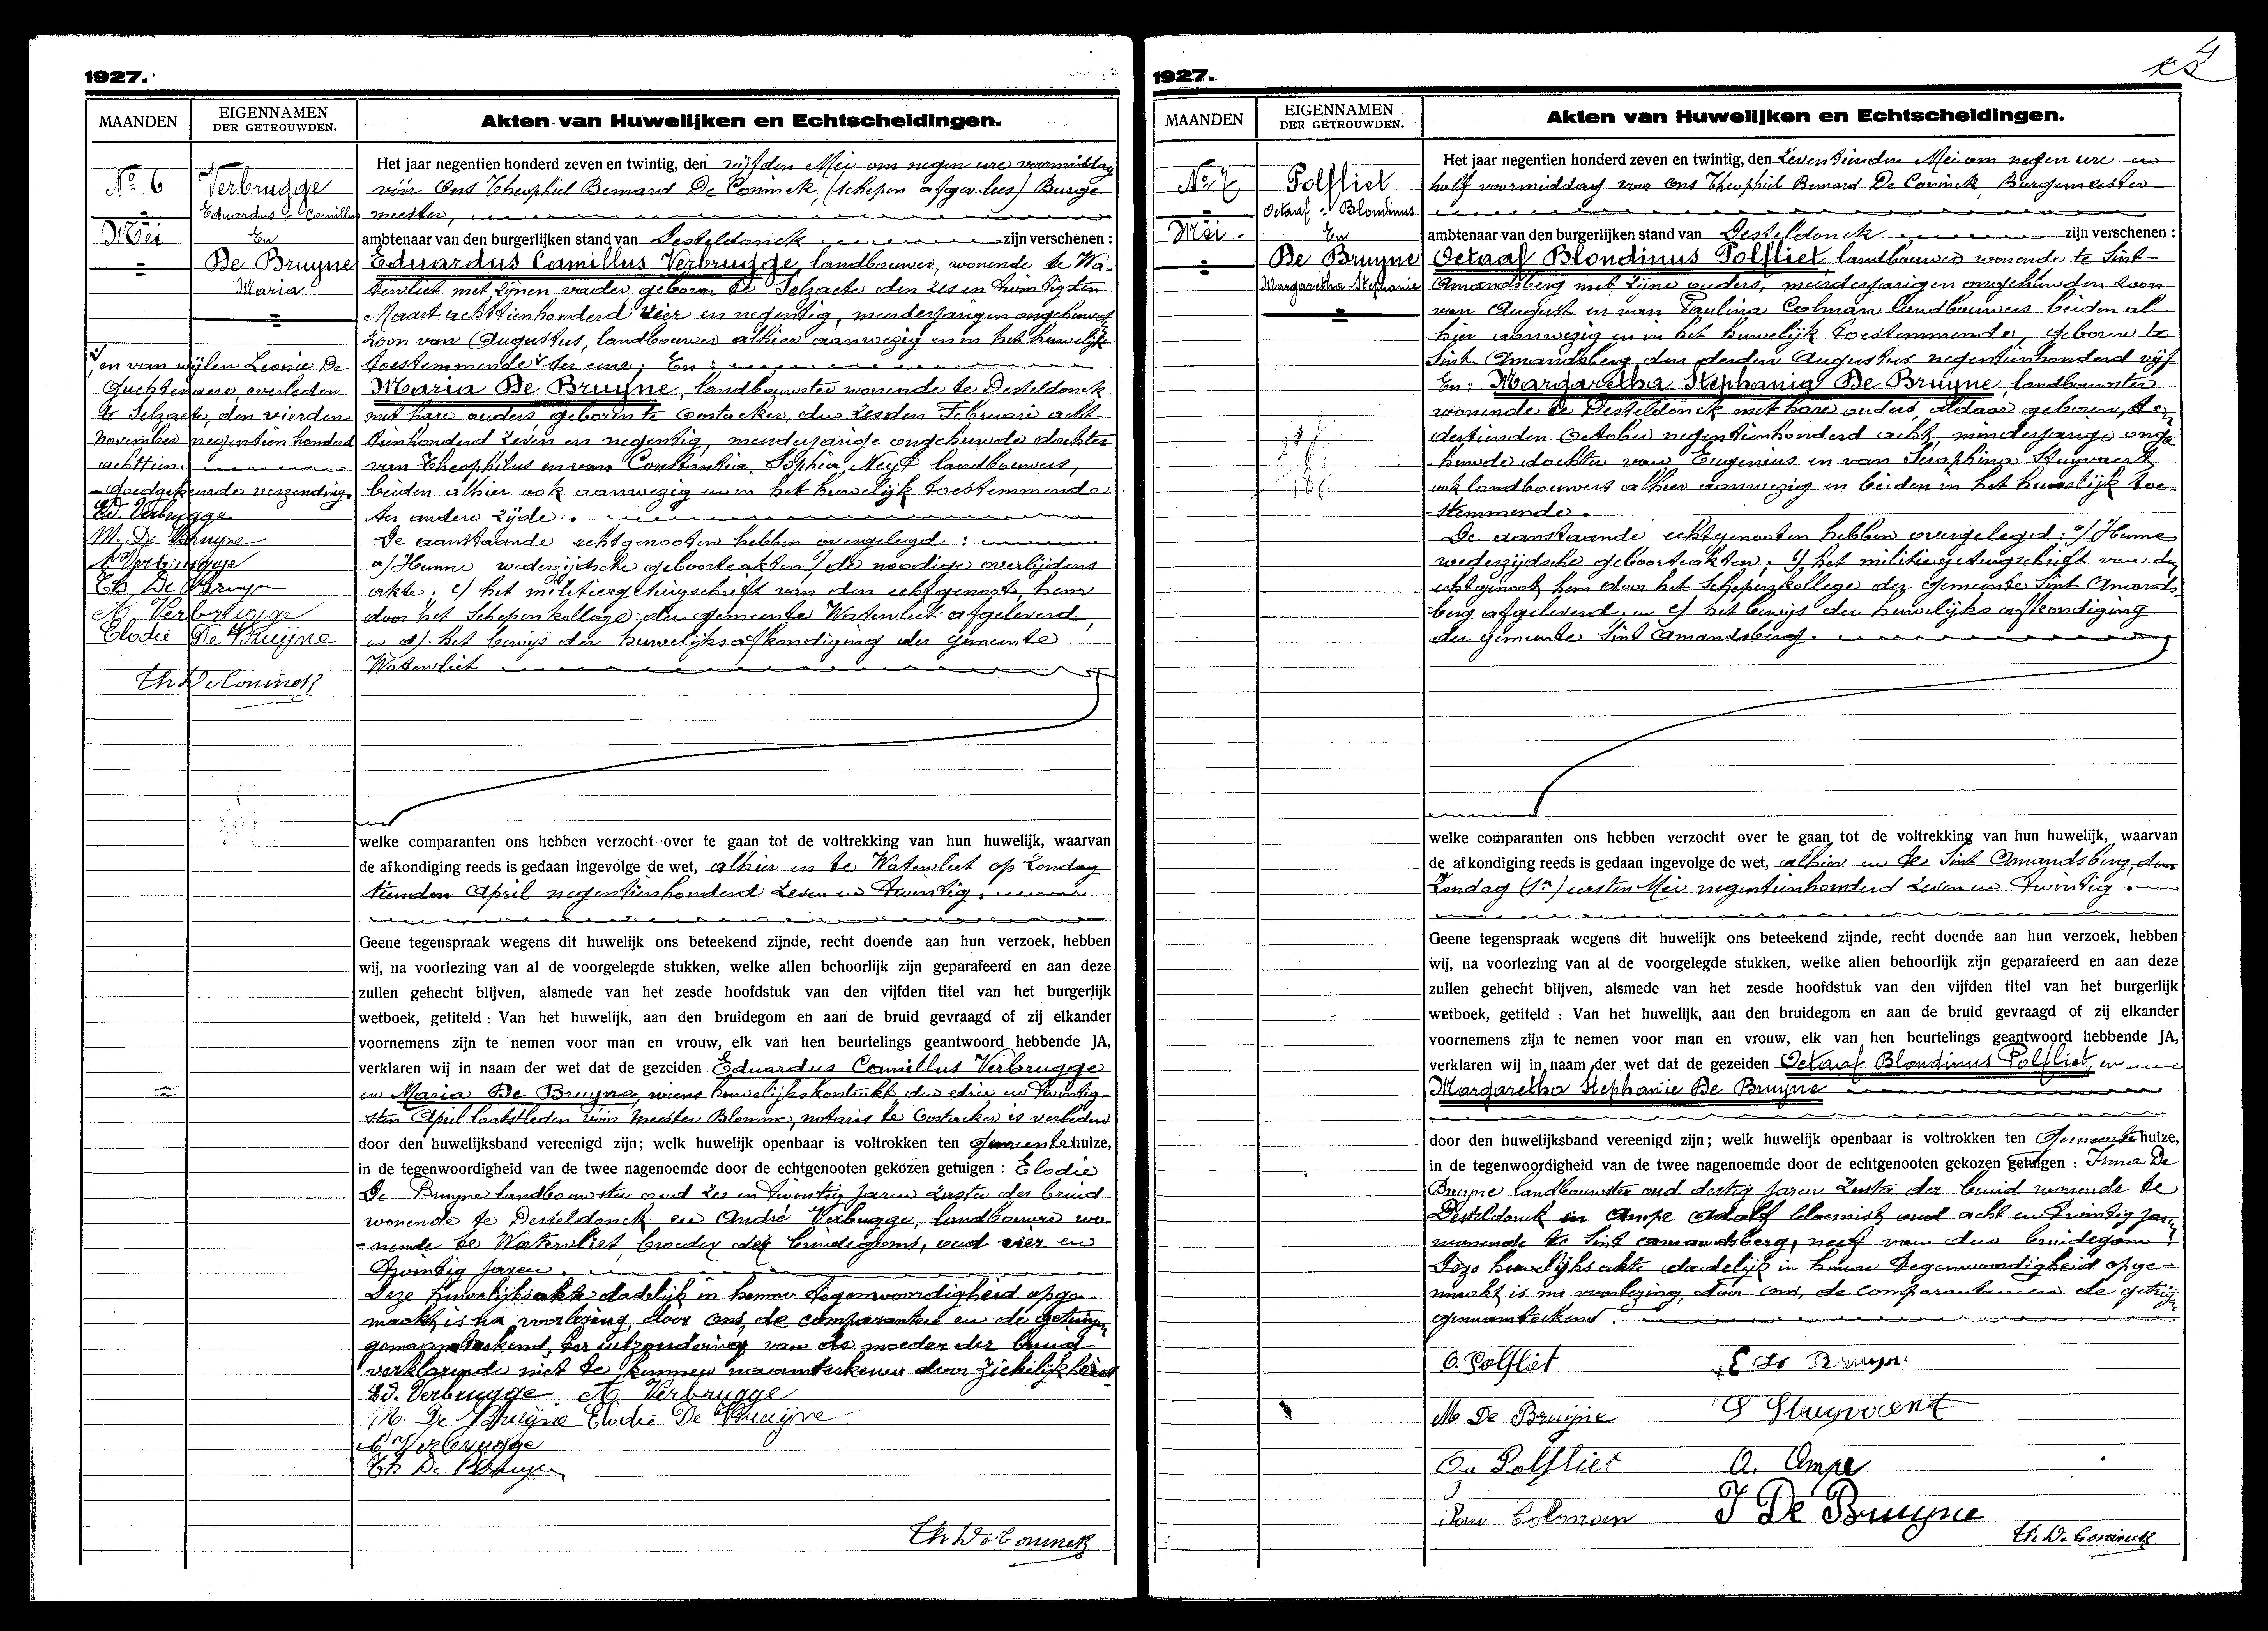 1927.
MAANDEN
EIGENNAMEN
DER GETROUWDEN.
Akten van Huwelijken en Echtscheidingen.
No 6
Mei
Verbrugge
Eduardus Camillus
En
De Bruyne
Maria
en van wijlen Leonie De
Guchtenaere, overleden
te Selzaete, den vierden
November negentien honderd
achttien
goedgekeurde verzending.
Ed. Verbrugge
M. De Bruyne
A. Verbrugge
Th De Bruyn
A. Verbrugge
Elodie De Bruijne
Th De Coninck
Het jaar negentien honderd zeven en twintig, den vijfden Mei om negen ure voormiddag
vóór Ons Theophiel Bernard De Coninck, (schepen afgev.) Burge-
meester,
ambtenaar van den burgerlijken stand van Desteldonck zijn verschenen :
Eduardus Camillus Verbrugge, landbouwer, wonende te Wa-
tervliet met zijnen vader geboren te Selzaete den zes en twintigsten
Maart achttienhonderd vier en negentig, meerderjarigen ongehuwd
zoon van Augustus, landbouwer alhier aanwezig en in het huwelijk
toestemmende ter eene; En :
Maria De Bruyne, landbouwster wonende te Desteldonck
met hare ouders, geboren te Oostacker, den zesden Februari acht
tienhonderd zeven en negentig, meerderjarige ongehuwde dochter
van Theophilus en van Constantia Sophia Neyt landbouwers,
beiden alhier ook aanwezig en in het huwelijk toestemmende
ter andere zijde.
De aanstaande echtgenooten hebben overgelegd :
a) Hunne wederzijdsche geboorteakten, b) de noodige overlijdens
akte; c) het militiegetuigschrift van den echtgenoot, hem
door het Schepenkollege der gemeente Watervliet afgeleverd,
en d). het bewijs der huwelijksafkondiging der gemeente
Watervliet
welke comparanten ons hebben verzocht over te gaan tot de voltrekking van hun huwelijk, waarvan
de afkondiging reeds is gedaan ingevolge de wet, alhier en te Watervliet op Zondag
tienden April negentienhonderd zeven en twintig.
Geene tegenspraak wegens dit huwelijk ons beteekend zijnde, recht doende aan hun verzoek, hebben
wij, na voorlezing van al de voorgelegde stukken, welke allen behoorlijk zijn geparafeerd en aan deze
zullen gehecht blijven, alsmede van het zesde hoofdstuk van den vijfden titel van het burgerlijk
wetboek, getiteld : Van het huwelijk, aan den bruidegom en aan de bruid gevraagd of zij elkander
voornemens zijn te nemen voor man en vrouw, elk van hen beurtelings geantwoord hebbende JA,
verklaren wij in naam der wet dat de gezeiden Eduardus Camillus Verbrugge
en Maria De Bruyne, wiens huwelijkskontrakt den drie en twintig-
sten April laatstleden vóór Meester Blomme, notaris te Oostacker is verleden
door den huwelijksband vereenigd zijn; welk huwelijk openbaar is voltrokken ten gemeentehuize,
in de tegenwoordigheid van de twee nagenoemde door de echtgenooten gekozen getuigen : Elodie
De Bruyne landbouwster oud zes en twintig jaren zuster der bruid
wonende te Desteldonck en André Verbrugge, landbouwer wo-
nende te Watervliet, broeder des bruidegoms, oud vier en
twintig jaren.
Deze huwelijksakte dadelijk in hunne tegenwoordigheid opge
maakt, is na voorlezing, door ons, de comparanten en de getuigen
genaamteekend, ter uitzondering van de moeder der bruid
verklarende niet te kunnen naamteekenen door ziekelijkheid
Ed. Verbrugge A. Verbrugge
M. De Bruyne Elodie De Bruijne
A Verbrugge
Th De Bruyn
Th De Coninck
4
1927.
MAANDEN
EIGENNAMEN
DER GETROUWDEN.
Akten van Huwelijken en Echtscheidingen.
No 7
Mei
Polfliet
Octaaf Blondinus
En
De Bruyne
Margaretha Stephanie
Het jaar negentien honderd zeven en twintig, den zeventienden Mei om negen ure en
half voormiddag voor Ons Theophiel Bernard De Coninck Burgemeester
ambtenaar van den burgerlijken stand van Desteldonck zijn verschenen :
Octaaf Blondinus Polfliet, landbouwer wonende te Sint-
Amandsberg met zijne ouders, minderjarigen ongehuwden zoon
van August en van Paulina Colman landbouwers beiden al
hier aanwezig en in het huwelijk toestemmende, geboren te
Sint-Amandsberg den derden Augustus negentienhonderd vijf
En: Margaretha Stephania De Bruyne, landbouwster
wonende te Desteldonck met hare ouders, aldaar geboren, den
dertienden October negentienhonderd acht, minderjarige onge
huwde dochter van Eugenius en van Seraphina Stuyvaert
ook landbouwers alhier aanwezig en beiden in het huwelijk toe-
stemmende.
De aanstaande echtgenooten hebben overgelegd: a) Hunne
wederzijdsche geboorteakten; b) het militiegetuigschrift van den
echtgenoot hem door het Schepenkollege der gemeente Sint Amands-
berg afgeleverd en c) het bewijs der huwelijks afkondiging
der gemeente Sint Amandsberg.
welke comparanten ons hebben verzocht over te gaan tot de voltrekking van hun huwelijk, waarvan
de afkondiging reeds is gedaan ingevolge de wet, alhier en te Sint Amandsberg, den
Zondag (1n) eersten Mei negentienhonderd zeven en twintig.
Geene tegenspraak wegens dit huwelijk ons beteekend zijnde, recht doende aan hun verzoek, hebben
wij, na voorlezing van al de voorgelegde stukken, welke allen behoorlijk zijn geparafeerd en aan deze
zullen gehecht blijven, alsmede van het zesde hoofdstuk van den vijfden titel van het burgerlijk
wetboek, getiteld : Van het huwelijk, aan den bruidegom en aan de bruid gevraagd of zij elkander
voornemens zijn te nemen voor man en vrouw, elk van hen beurtelings geantwoord hebbende JA,
verklaren wij in naam der wet dat de gezeiden Octaaf Blondinus Polfliet, en
Margaretha Stephanie De Bruyne
door den huwelijksband vereenigd zijn; welk huwelijk openbaar is voltrokken ten Gemeentehuize,
in de tegenwoordigheid van de twee nagenoemde door de echtgenooten gekozen getuigen : Irma De
Bruyne landbouwster oud dertig jaren zuster der bruid wonende te
Desteldonck en Ampe Adolf bloemist, oud acht en twintig jaren
wonende te Sint Amandsberg, neef van den bruidegom.
Deze huwelijksakte dadelijk in hunne tegenwoordigheid opge-
maakt is na voorlezing, door ons, de comparanten en de getuigen
genaamteekend.
O. Polfliet E De Bruyn
M De Bruijne S Stuyvaert
Au Polfliet A. Ampe
Pau Colman I De Bruyne
Th. De Coninck